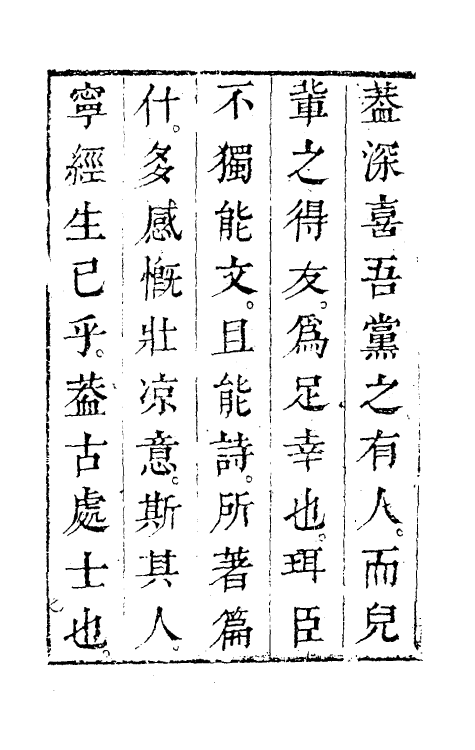 葢深喜吾黨之有人。而兒
輩之得友。爲足幸也。珥臣
不獨能文。且能詩。所著篇
什。多感慨壯凉意。斯其人。
寧經生已乎。葢古處士也。